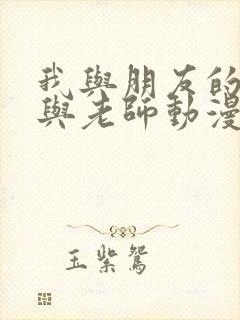 我與朋友的
與老師動漫
玉紫鴛